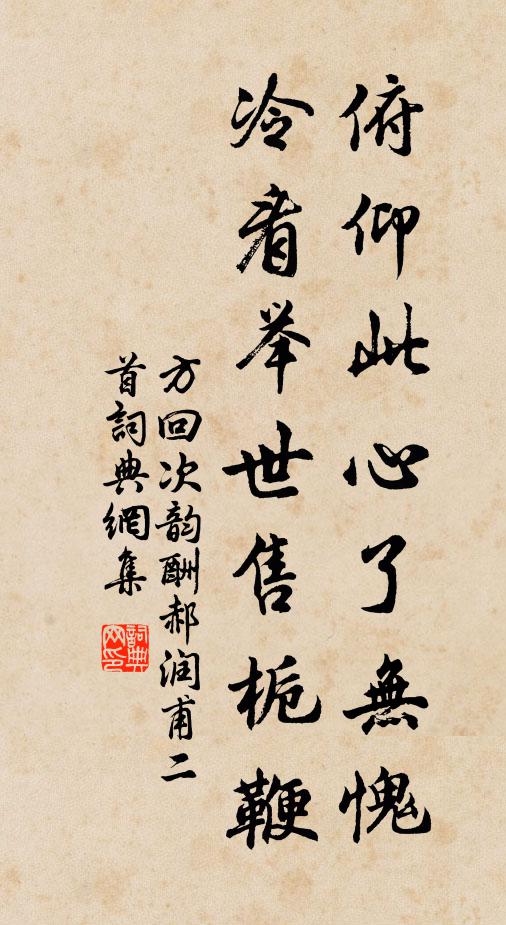 俯仰此心了無愧
冷看举世售栀鞭
方回次韵酬郝润甫二
首詞典網集
詞典
网印